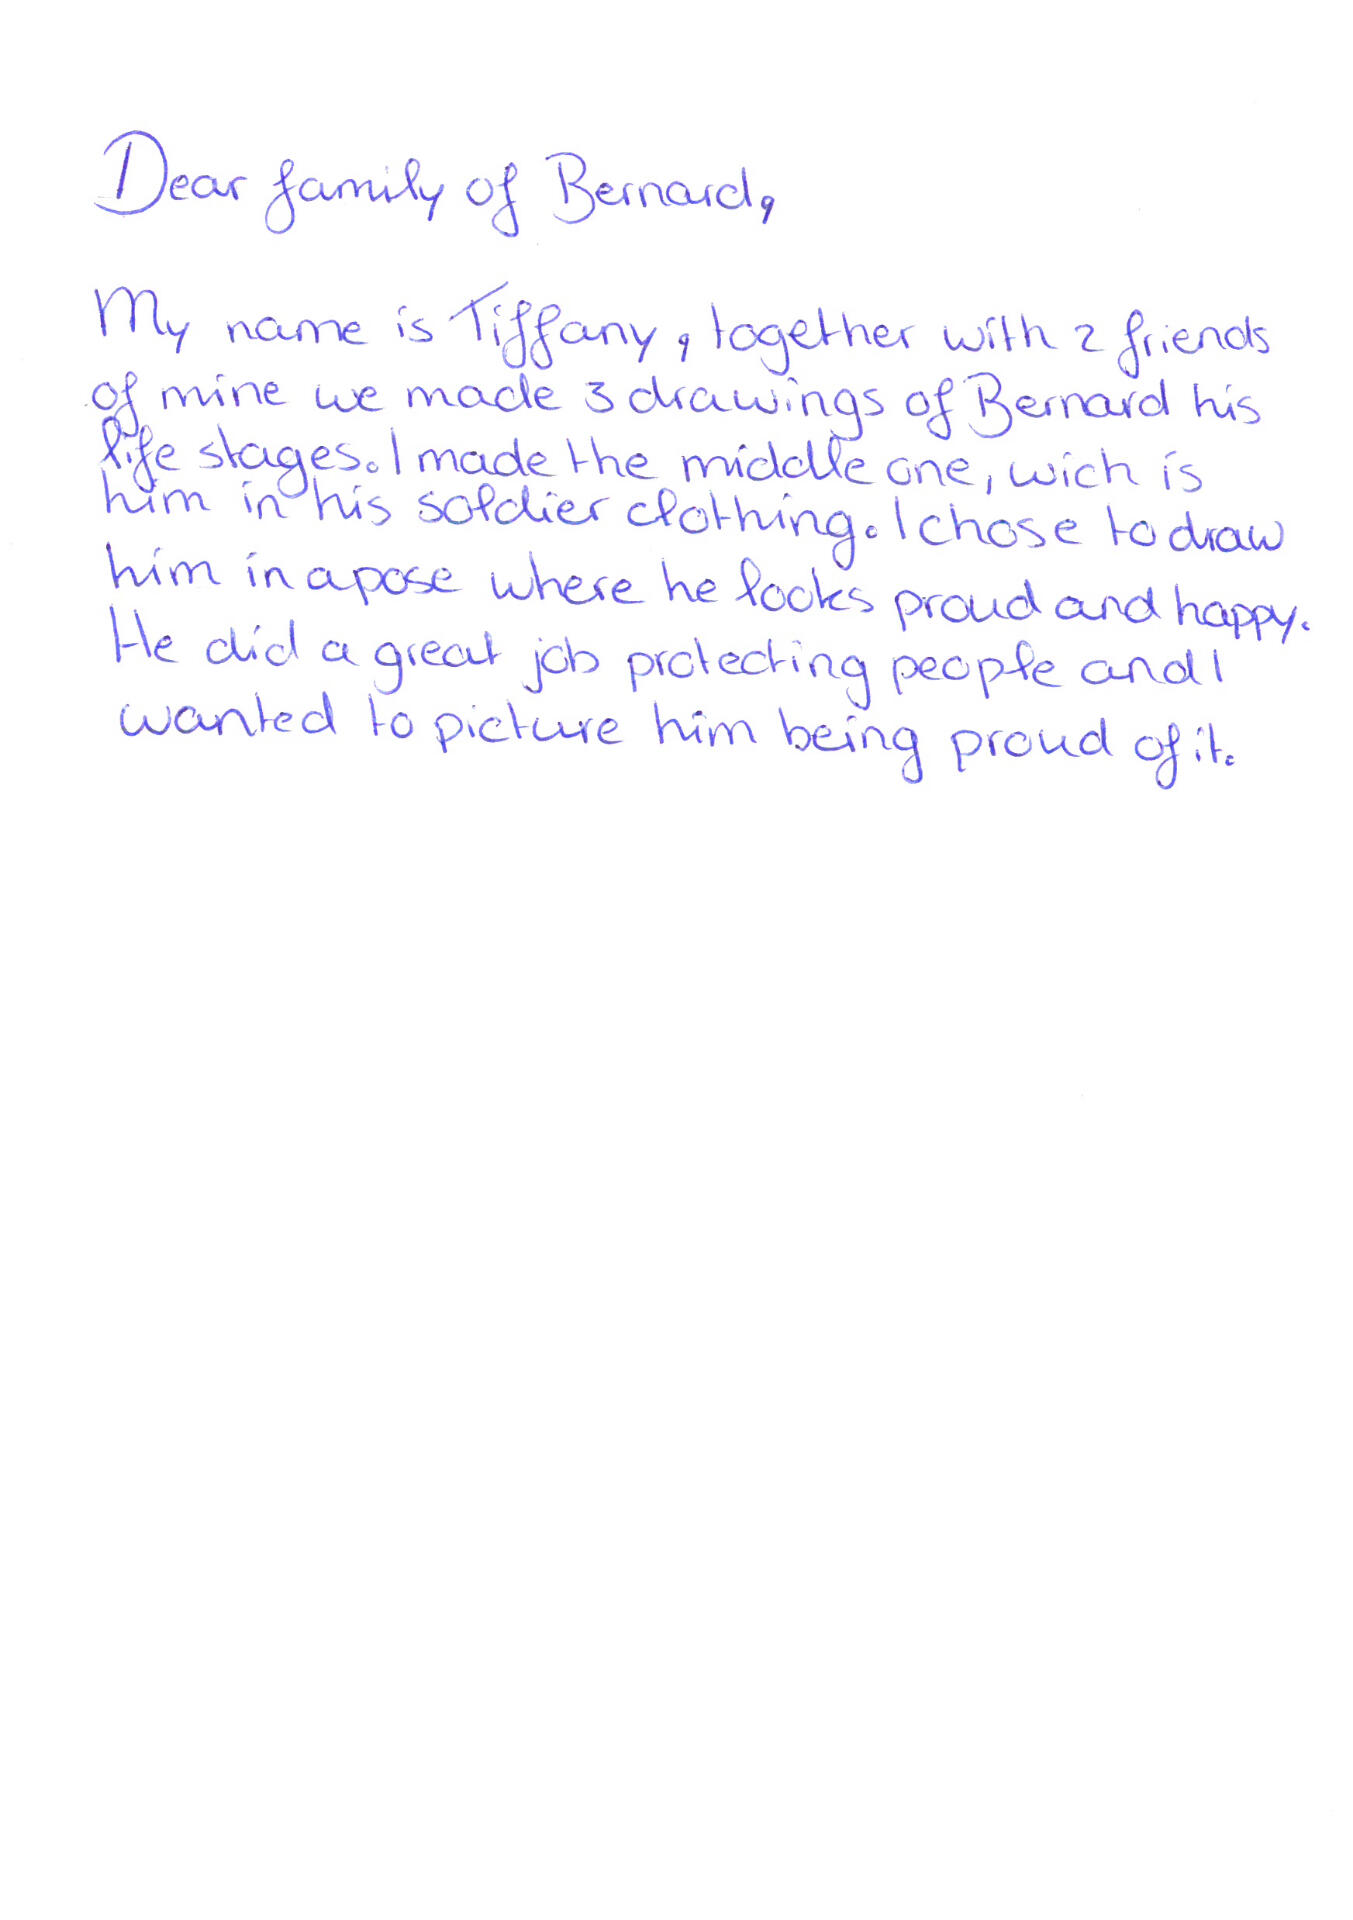 Dear family of Bernard,
My name is Tiffany, together with 2 friends
of mine we made 3 drawings of Bernard his
life stages. I made the middle one, wich is
him in his soldier clothing. I chose to draw
him in a pose where he looks proud and happy.
He did a great job protecting people and I
wanted to picture him being proud of it.